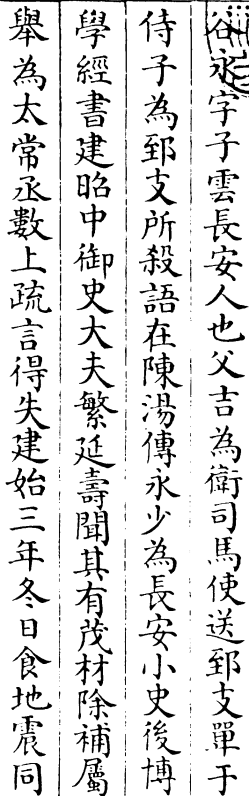 谷永字子雲長安人也父吉為衛司馬使送郅支單于
侍子為郅支所殺語在陳湯傳永少為長安小史後博
學經書建昭中御史大夫繁延壽聞其有茂材除補屬
舉為太常丞數上疏言得失建始三年冬日食地震同